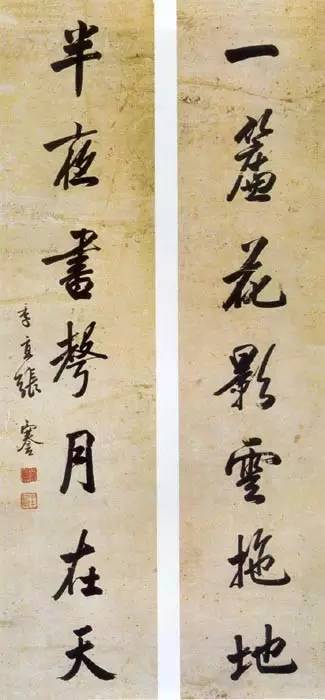 一簾花影雲拖地
半夜書聲月在天
季直張謇